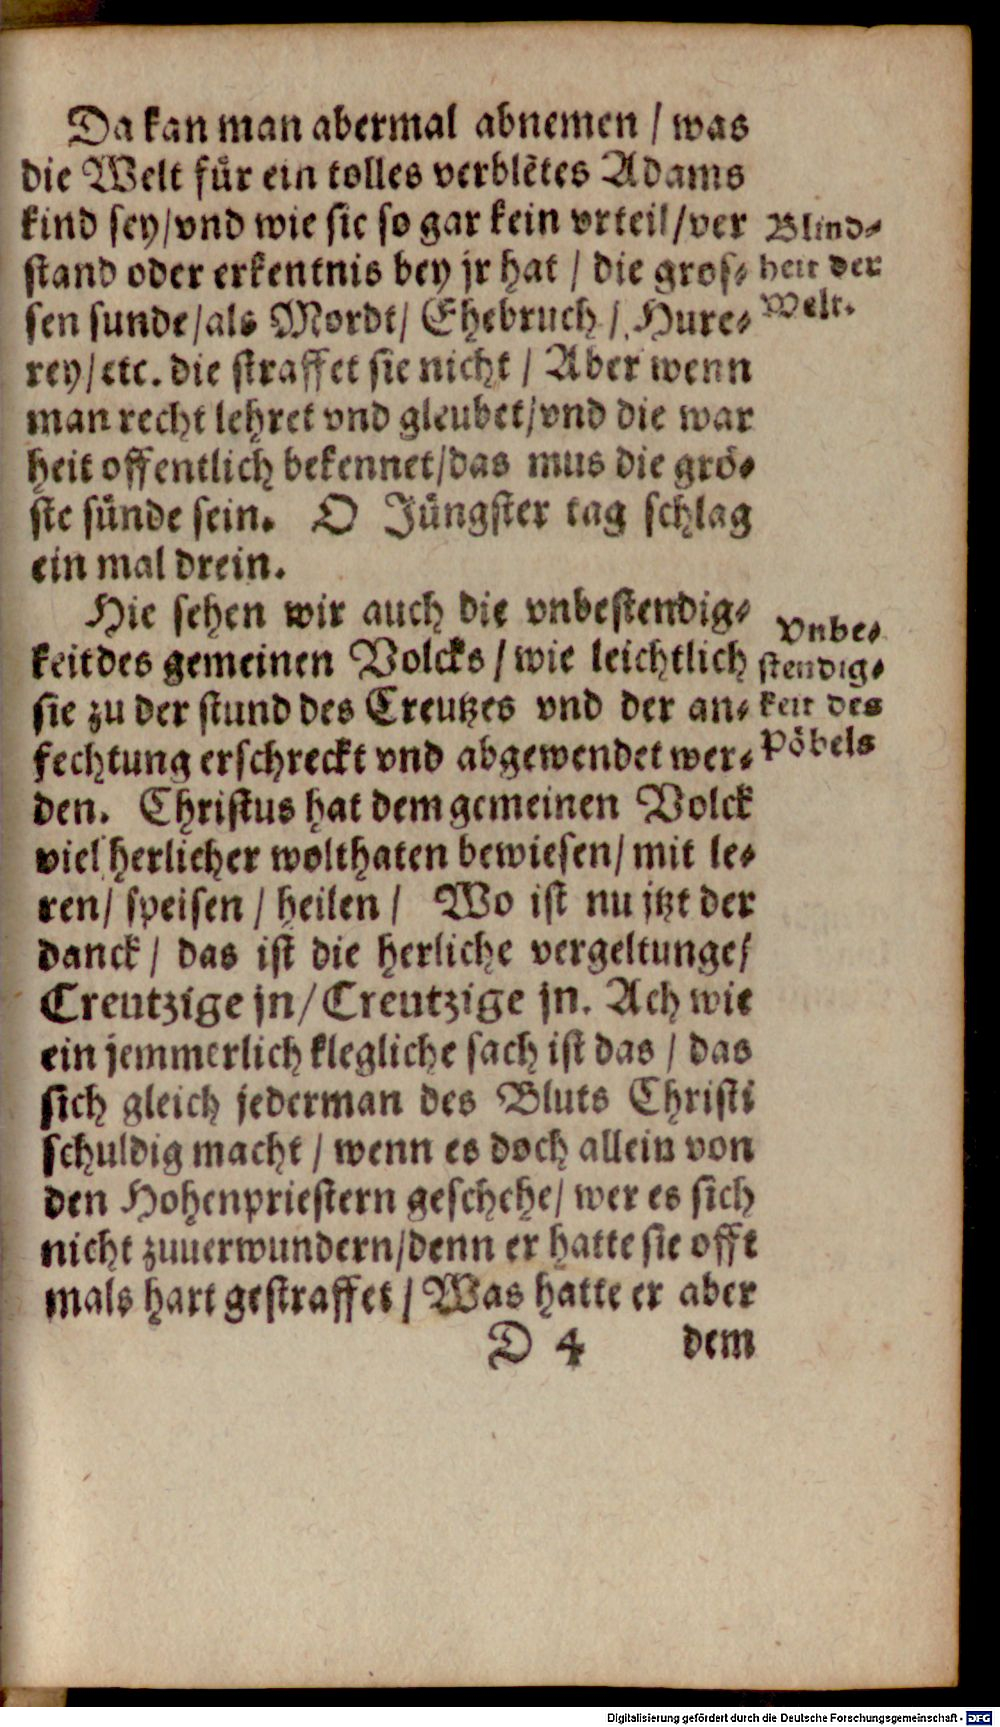 Da kan man abermal abnemen / was
die Welt für ein tolles verblẽtes Adams
kind sey/vnd wie sie so gar kein vrteil/ver
stand oder erkentnis bey jr hat / die gros-
sen sunde/als Mordt/ Ehebruch /. Hure-
rey/etc. die straffet sie nicht / Aber wenn
man recht lehret vnd gleubet/vnd die war
heit offentlich bekennet/das mus die grö-
ste sünde sein. O Jüngster tag schlag
ein mal drein.
Blind-
heit der
Welt.
Hie sehen wir auch die vnbestendig-
keit des gemeinen Volcks / wie leichtlich
sie zu der stund des Creutzes vnd der an-
fechtung erschreckt vnd abgewendet wer-
den. Christus hat dem gemeinen Volck
viel herlicher wolthaten bewiesen/ mit le-
ren/ speisen / heilen / Wo ist nu jtzt der
danck / das ist die herliche vergeltunge/
Creutzige jn/ Creutzige jn. Ach wie
ein jemmerlich klegliche sach ist das / das
sich gleich jederman des Bluts Christi
schuldig macht / wenn es doch allein von
den Hohenpriestern geschehe/ wer es sich
nicht zuuerwundern/denn er hatte sie offt
mals hart gestraffet / Was hatte er aber
Vnbe-
stendig-
keit des
Pöbels
D 4 dem
Digitalisierung gefördert durch die Deutsche Forschungsgemeinschaft - DFG